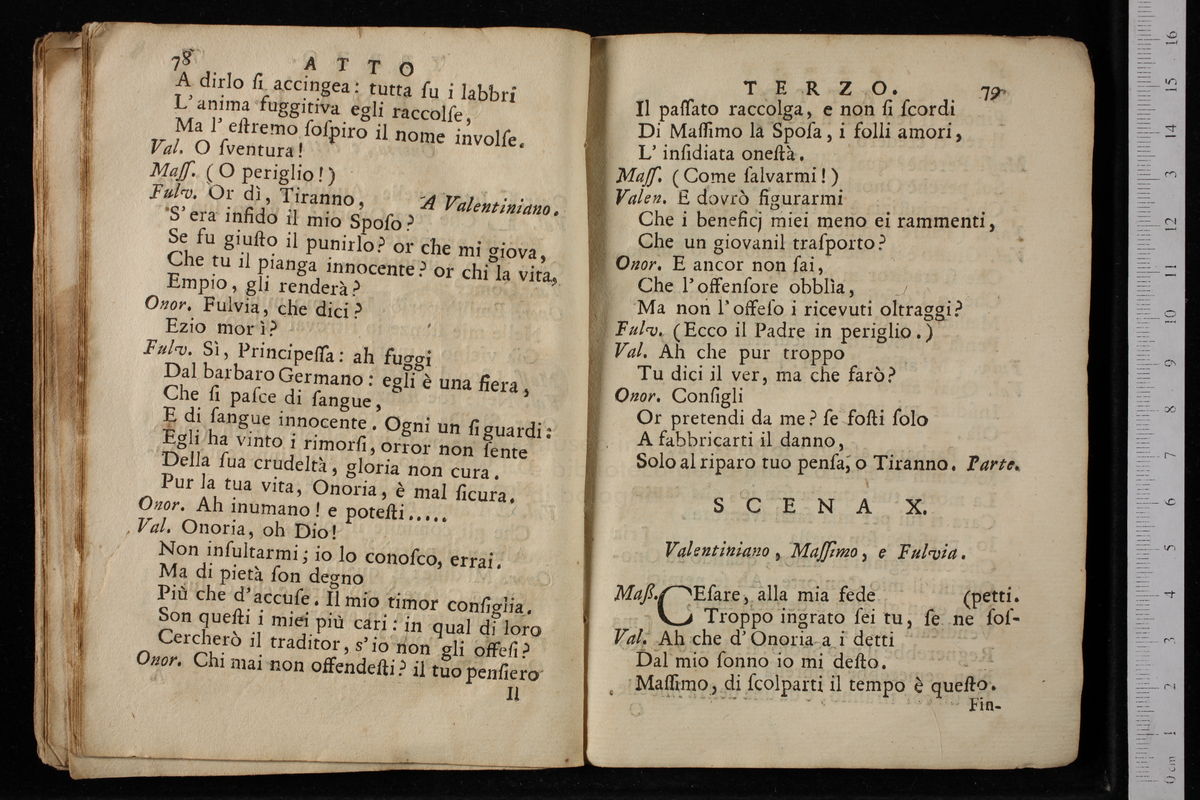 78 ATTO
A dirlo ſi accingea: tutta ſu i labbri
L' anima fuggitiva egli raccolſe,
Ma l' eſtremo ſoſpiro il nome involſe.
Val. O ſventura!
Maſſ. (O periglio!)
Fulv. Or dì, Tiranno, A Valentiniano.
S' era infido il mio Spoſo?
Se fu giuſto il punirlo? or che mi giova,
Che tu il pianga innocente? or chi la vita,
Empio, gli renderà?
Onor. Fulvia, che dici?
Ezio morì?
Fulv. Sì, Principeſſa: ah fuggi
Dal barbaro Germano: egli è una fiera,
Che ſi paſce di ſangue,
E di ſangue innocente. Ogni un ſi guardi:
Egli ha vinto i rimorſi, orror non ſente
Della ſua crudeltà, gloria non cura.
Pur la tua vita, Onoria, è mal ſicura.
Onor. Ah inumano! e poteſti.....
Val. Onoria, oh Dio!
Non inſultarmi; io lo conoſco, errai.
Ma di pietà ſon degno
Più che d'accuſe. Il mio timor conſiglia.
Son queſti i miei più cari: in qual di loro
Cercherò il traditor, s'io non gli offeſi?
Onor. Chi mai non offendeſti? il tuo penſiero
Il
TERZO. 79
Il paſſato raccolga, e non ſi ſcordi
Di Maſſimo la Spoſa, i folli amori,
L' inſidiata oneſtà.
Maſſ. (Come ſalvarmi!)
Valen. E dovrò figurarmi
Che i beneficj miei meno ei rammenti,
Che un giovanil traſporto?
Onor. E ancor non ſai,
Che l'offenſore obblìa,
Ma non l'offeſo i ricevuti oltraggi?
Fulv. (Ecco il Padre in periglio.)
Val. Ah che pur troppo
Tu dici il ver, ma che farò?
Onor. Conſigli
Or pretendi da me? ſe foſti ſolo
A fabbricarti il danno,
Solo al riparo tuo penſa, o Tiranno. Parte.
SCENA X.
Valentiniano, Maſſimo, e Fulvia.
Maß. CEſare, alla mia fede (petti.
Troppo ingrato ſei tu, ſe ne ſoſ-
Val. Ah che d' Onoria a i detti
Dal mio ſonno io mi deſto.
Maſſimo, di ſcolparti il tempo è queſto.
Fin-